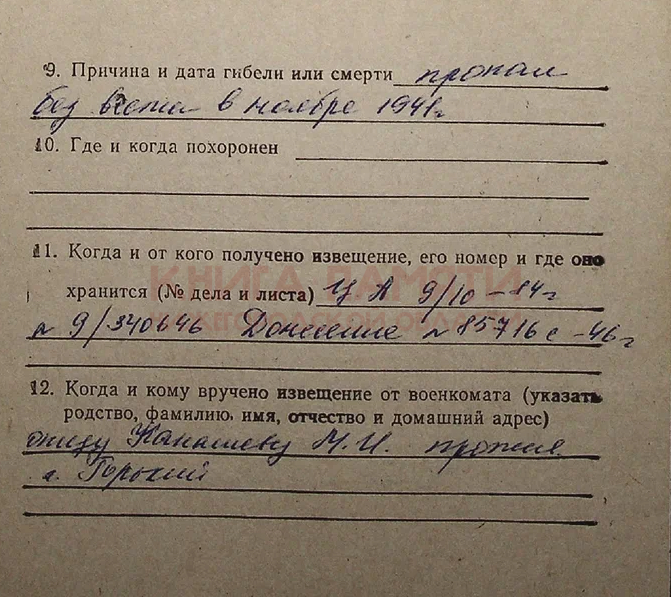 9. Причина и дата гибели или смерти пропал
без вести в ноябре 1941г
10. Где и когда похоронен
11. Когда и от кого получено извещение, его номер и где оно
КНИГА ПАМЯТИ
хранится (№ дела и листа) ЦА 9/10-84г
НИЖЕГОРОДСКОЙ ОБЛАСТИ
№ 9/340646 Донесение № 85716с-46г
12. Когда и кому вручено извещение от военкомата (указать
родство, фамилию, имя, отчество и домашний адрес)
отцу М.И. прожив.
г. Горький